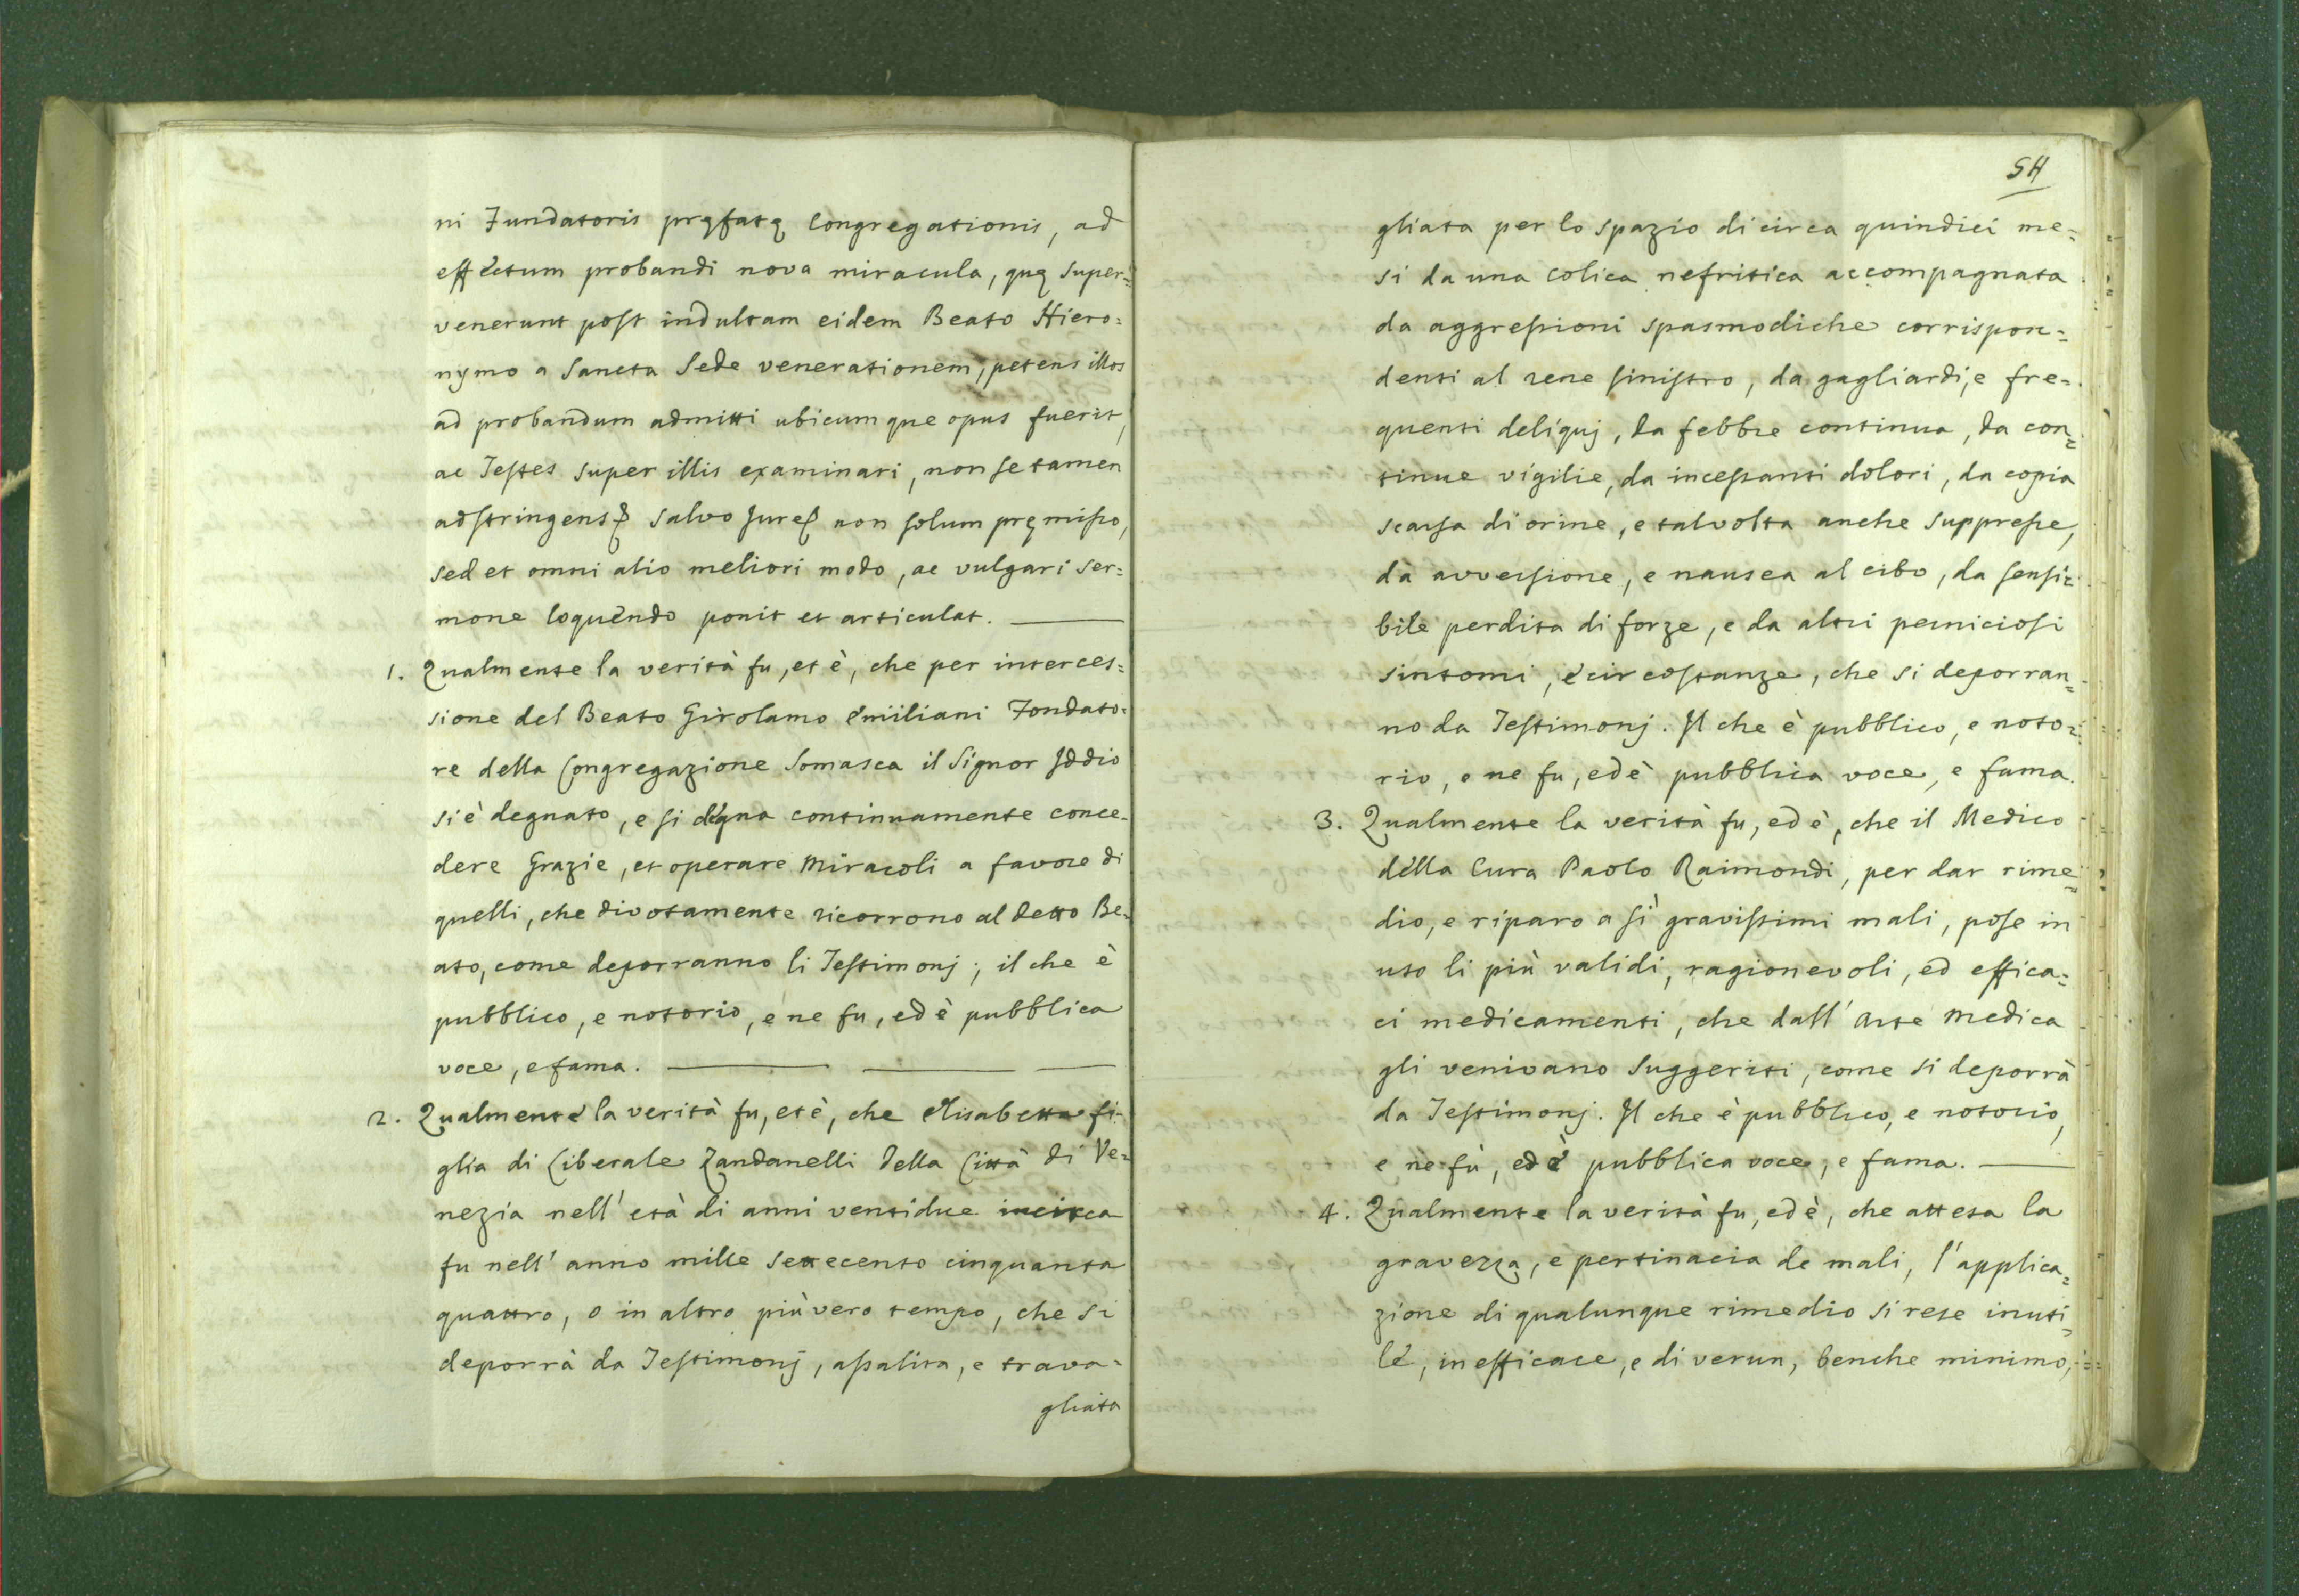 ni Fundatoris pręfatę Congregationis, ad
effectum probandi nova miracula, quę super=
venerunt post indultam eidem Beato Hiero=
nymo a Sancta Sede venerationem, petens illos
ad probandum admitti ubicumque opus fuerit,
ac Testes super illis examinari, non se tamen
adstringens salvo Jure non solum pręmisso,
sed et omni alio meliori modo, ac vulgari ser=
mone loquendo ponit et articulat.
1. Qualmente la verità fu, et è, che per interces=
sione del Beato Girolamo Emiliani Fondato=
re della Congregazione Somasca il Signor Iddio
si è degnato, e si degna continuamente conce=
dere Grazie, et operare Miracoli a favore di
quelli, che divotamente ricorrono al detto Be=
ato, come deporranno li Testimonj; il che è
pubblico, e notorio, e ne fu, ed è pubblica
voce, e fama.
2. Qualmente la verità fu, et è, che Elisabetta fi=
glia di Liberale Zandanelli della Città di Ve=
nezia nell' età di anni ventidue incirca
fu nell' anno mille settecento cinquanta
quattro, o in altro più vero tempo, che si
deporrà da Testimonj, assalita, e trava=
gliata
54
gliata per lo spazio di circa quindici me=
si da una colica nefritica accompagnata
da aggressioni spasmodiche corrispon=
denti al rene sinistro, da gagliardi, e fre=
quenti deliquj, da febbre continua, da con=
tinue vigilie, da incessanti dolori, da copia
scarsa di orine, e talvolta anche suppresse,
da avversione, e nausea al cibo, da sensi=
bile perdita di forze, e da altri perniciosi
sintomi, e circostanze, che si deporran=
no da Testimonj. Il che è pubblico, e noto=
rio, e ne fu, ed è pubblica voce, e fama.
3. Qualmente la verità fu, ed è, che il Medico
della Cura Paolo Raimondi, per dar rime=
dio, e riparo a sì gravissimi mali, pose in
uso li più validi, ragionevoli, ed effica=
ci medicamenti, che dall' Arte Medica
gli venivano suggeriti, come si deporrà
da Testimonj. Il che è pubblico, e notorio,
e ne fù, ed è pubblica voce, e fama.
4. Qualmente la verità fu, ed è, che attesa la
gravezza, e pertinacia de mali, l' applica=
zione di qualunque rimedio si rese inuti=
le, inefficace, e di verun, benche minimo,